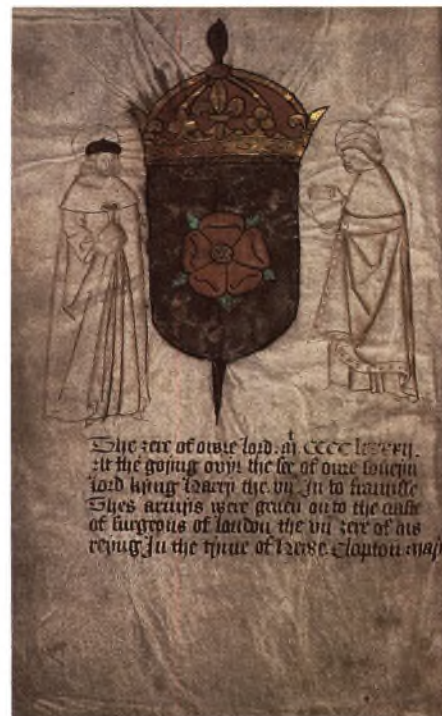 The zere of owre lord .m. CCCC lxxxxij.
At the going ovyr the see of oure soueyn
lord kyng Harry the .vij. In to fraunsse
Thes armys were geven on to the crafte
of surgeons of london the vij zere of his
reyng In the tyme of Hewe Clopton mayr